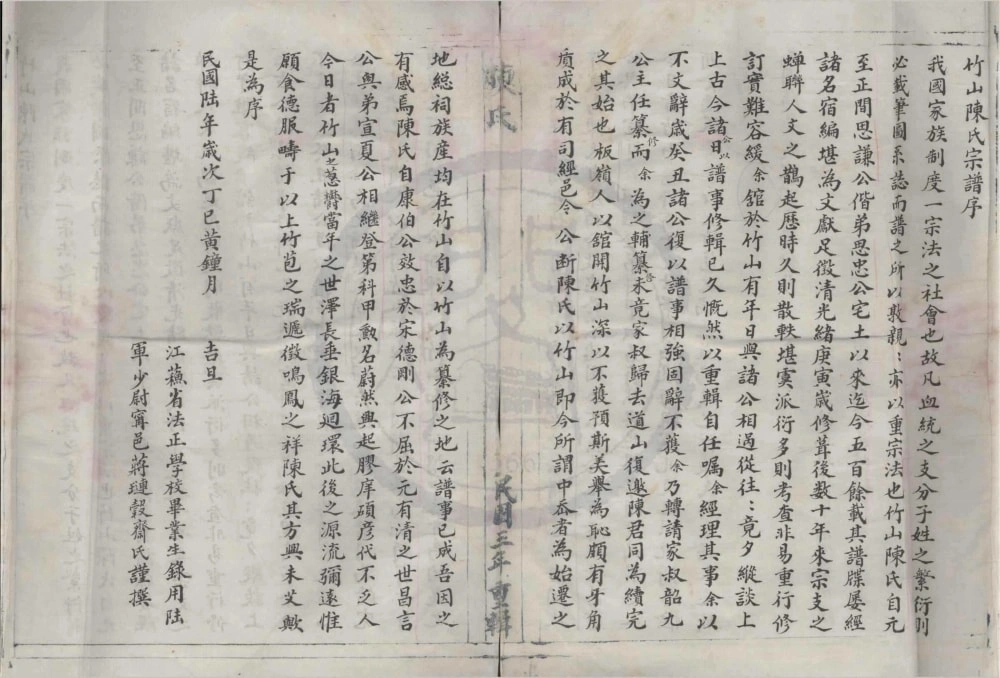 竹山陳氏宗譜序
我國家族制度一宗法之社會也故凡血統之支分子姓之繁衍則
必載筆圖系誌而譜之所以敦親:亦以重宗法也竹山陳氏自元
至正間思謙公偕弟思忠公宅土以來迄今五百餘載其譜牒屡經
諸名宿編堪為文獻足徵清光緒庚寅歲修葺後数十年來宗支之
蟬聯人文之鵲起歷時久則散軼堪虞派衍多則考查非易重行修
訂實難容緩余舘於竹山有年日與諸公相過從往:竟夕縱談上
上古今諸公日以譜事修輯已久慨然以重輯自任嘱余經理其事余以
不文辭歲癸丑諸公復以譜事相強固辭不獲余乃轉請家叔韶九
公主任纂修而余為之輔纂修未竟家叔歸去道山復邀陳君同為續完
之其始也板嶺人以舘開竹山深以不獲預斯美舉為恥頗有牙角
盾成於有司經邑令公斷陳氏以竹山即今所謂中岙者為始遷之
陳氏
民國三年重輯
地総祠族産均在竹山自以竹山為纂修之地云譜事已成吾因之
有感焉陳氏自康伯公效忠於宋德剛公不屈於元有清之世昌言
公與弟宣夏公相繼登第科甲勲名蔚然興起膠庠碩彦代不乏人
今日者竹山之葱欝當年之世澤長垂銀海廻環此後之源流彌遠惟
願食德服疇于以上竹苞之瑞遞徵鳴鳳之祥陳氏其方興未艾歟
是為序
民國陸年歲次丁巳黄鐘月 吉旦
江蘇省法正學校畢業生錄用陸
軍少尉甯邑蔣璉瑴齋氏謹撰